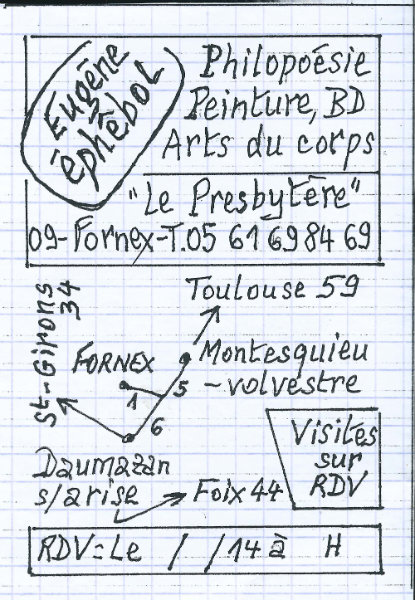 Eugène
éphêbol
Philopoésie
Peinture, BD
Arts du corps
"Le Presbytère"
09-Fornex-T.05 61 69 84 69
Toulouse 59
St-Girons
34
FORNEX
Montesquieu
-volvestre
1
5
6
Visites
sur
RDV
Daumazan
s/arise
Foix 44
RDV=Le / /14 à H